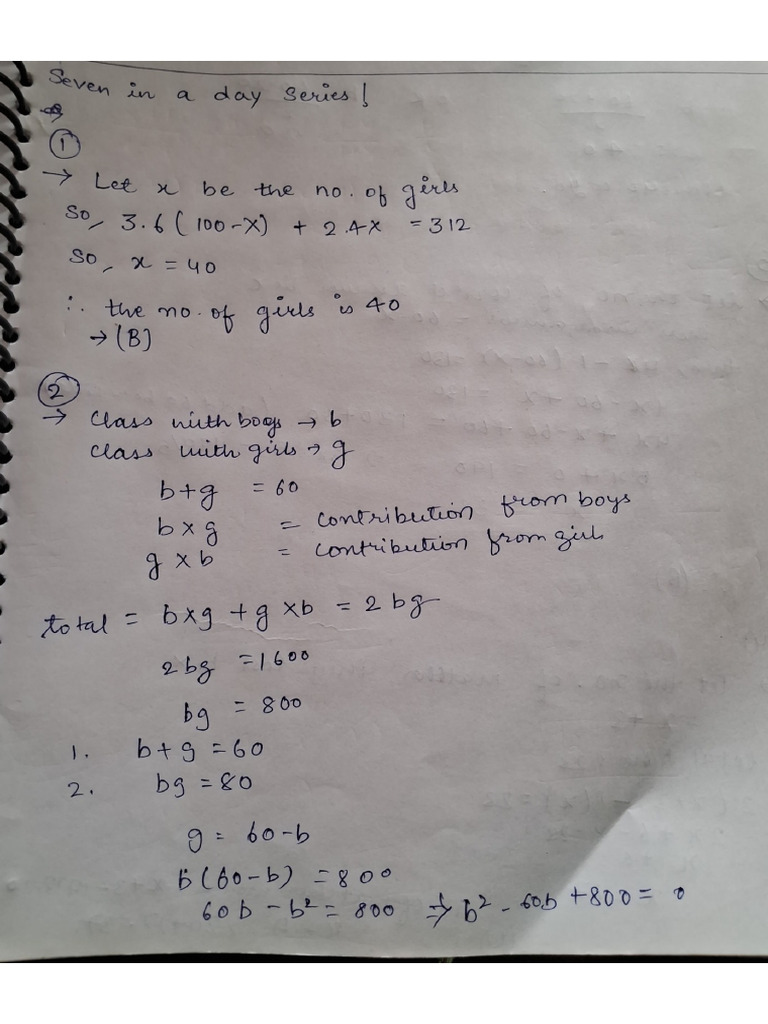 Seven in a day series!
→
①
→ Let x be the no. of girls
So, 3.6(100-x) + 2.4x = 312
So, x = 40
∴ the no. of girls is 40
→ (B)
②
→ Class with boys → b
Class with girls → g
b+g = 60
b×g = contribution from boys
g×b = contribution from girls
total = b×g + g×b = 2bg
2bg = 1600
bg = 800
1. b+g = 60
2. bg = 80
g = 60-b
b(60-b) = 800
60b - b² = 800 ⇒ b² - 60b + 800 = 0